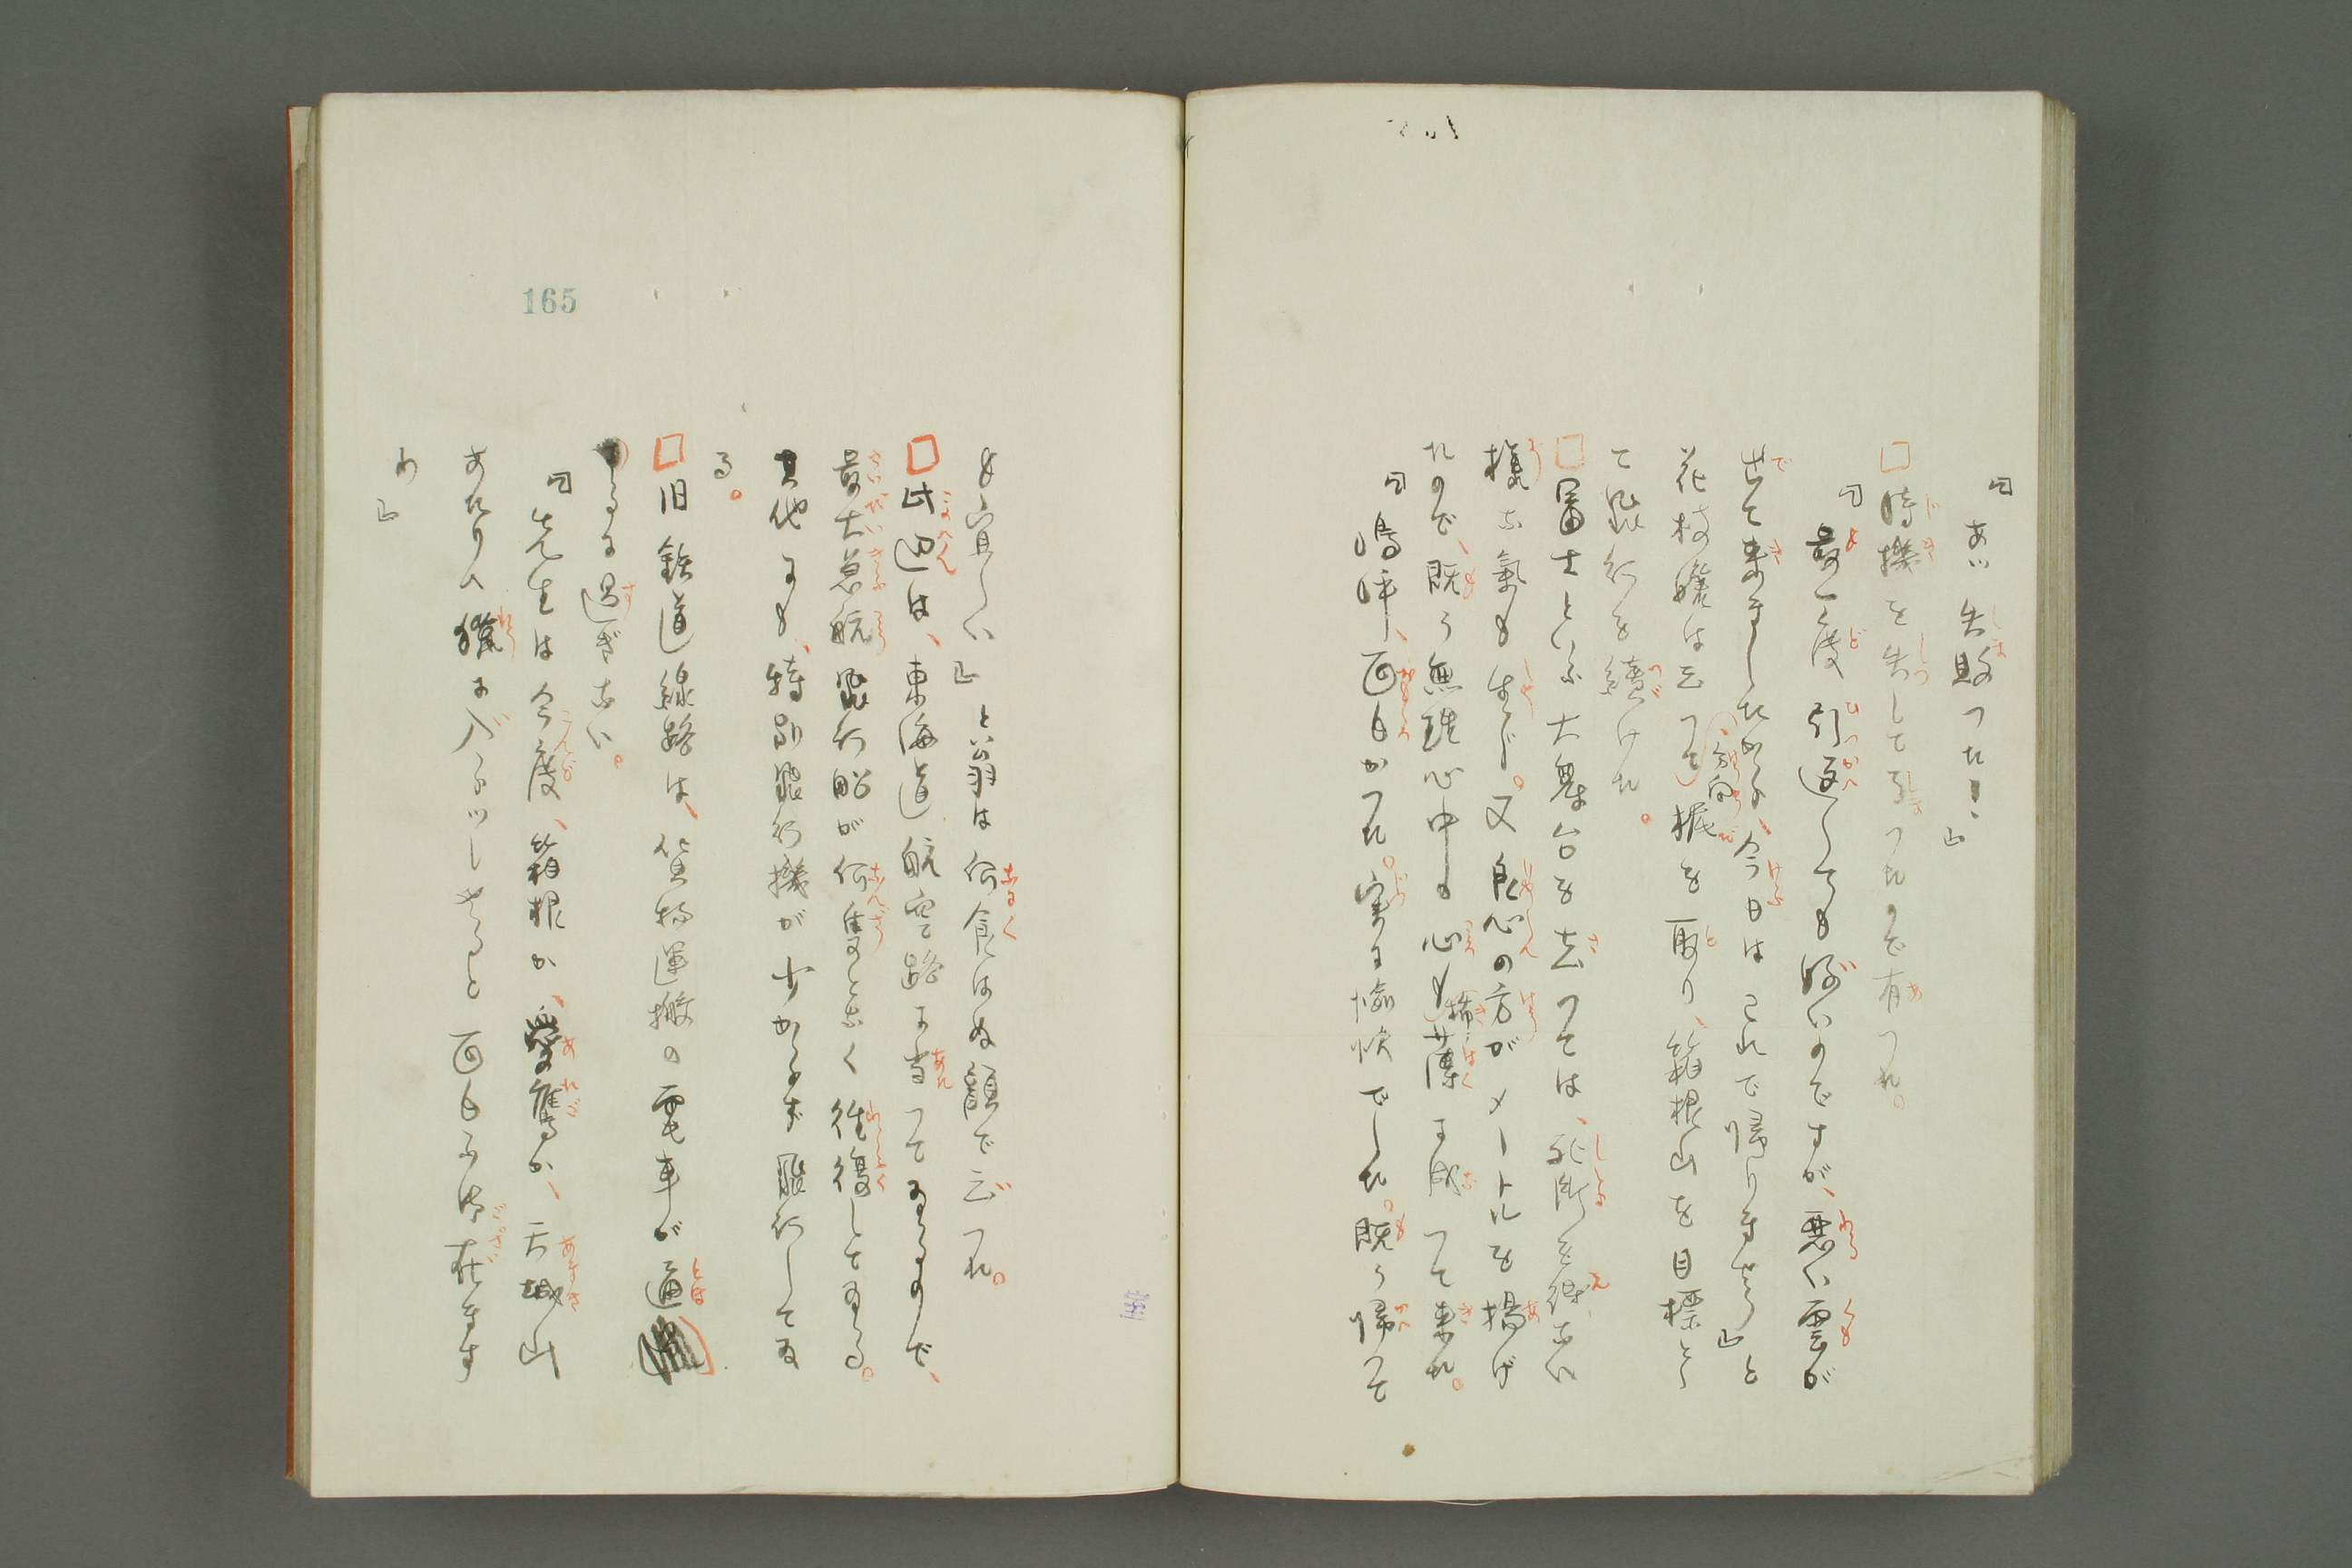 「あゝ失敗つた！」
□時機を失して了つたので有つた。
「最一度引返しても好いのですが、悪い雲が
出て来ましたから、今日はこれで帰りませう」と
花枝孃は云つて方向柁を取り、箱根山を目標とし
て飛行を續けた。
□富士といふ大舞台を去つては、獵をする
樣な氣も生ぜず。又良心の方がメートルを揚げ
たので、既う無理心中する心も稀薄に成つて來た。
「嗚呼、面白かつた。實に愉快でした。既う帰つて
も宜しい」と翁は何食はぬ顔で云つた。
□此邊は、東海道航空路に当つてゐるので、
最大急航飛行船が何隻となく徃復してゐる。
其他にも、特別飛行機が少からず飛行してゐ
る。
□旧鉄道線路は、貨物運搬の電車が通
るに過ぎない。
「先生は今度、箱根か、愛鷹か、天城山
あたりへ獵に入らツしやると面白ふ御在ます
わ」
165